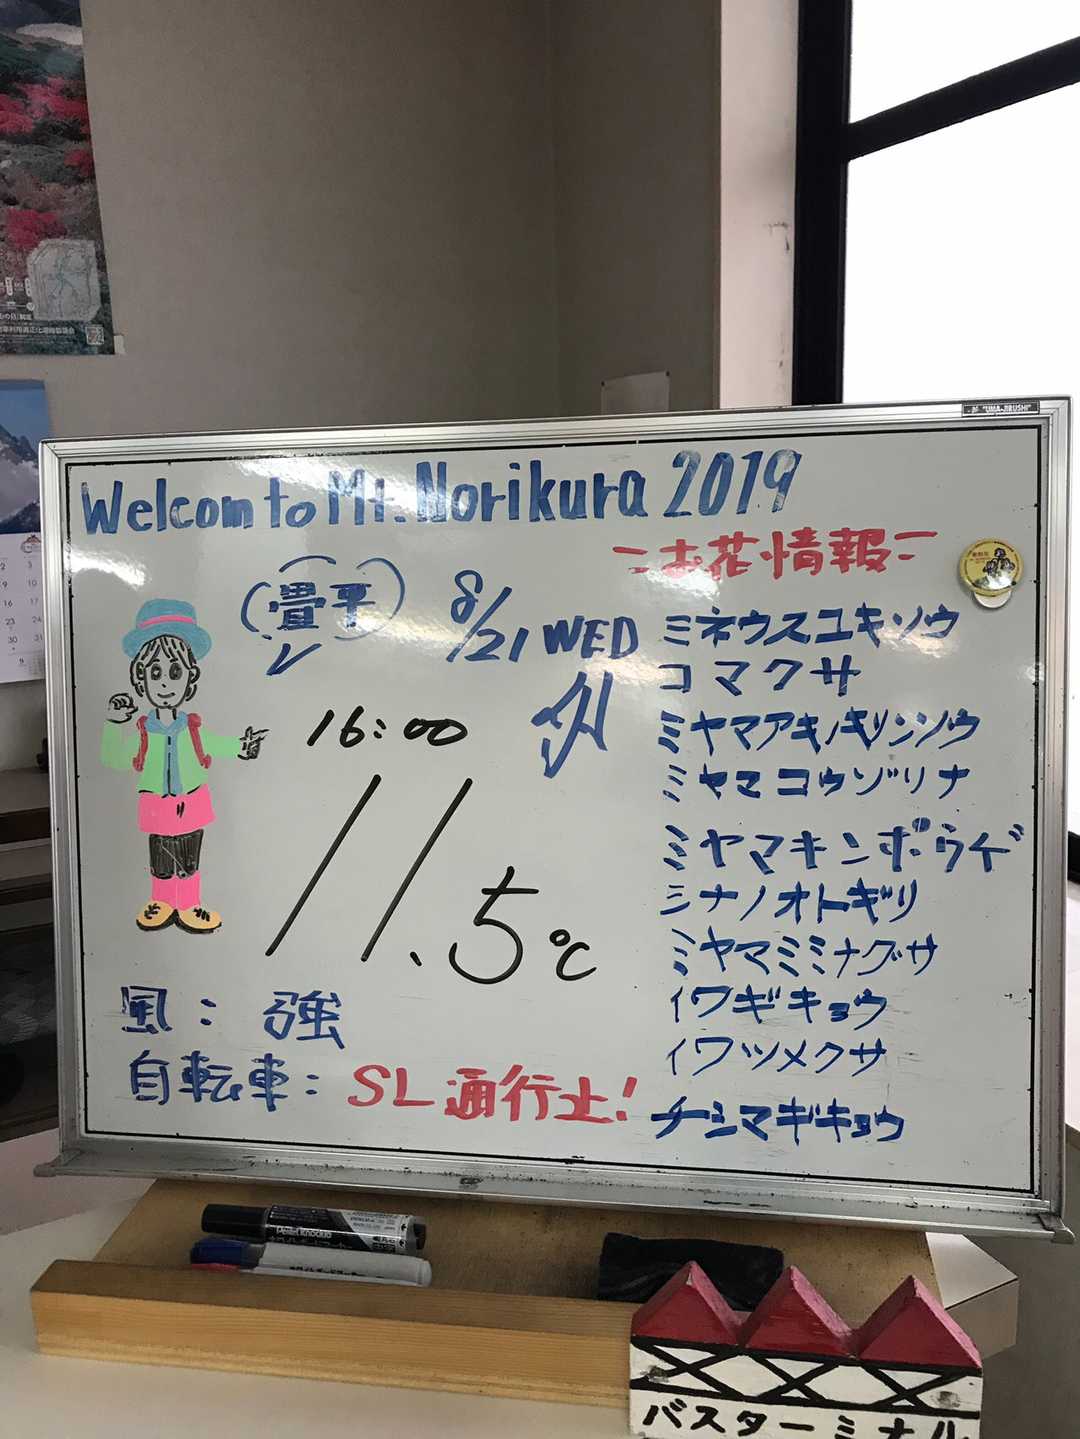 "UMA-JIRUSHI"
Welcom to Mt. Norikura 2019
=お花情報=
(畳平) 8/21 WED
16:00
11.5℃
風: 強
自転車: SL通行止!
ミネウスユキソウ
コマクサ
ミヤマアキノキリンソウ
ミヤマコウゾリナ
ミヤマキンポウゲ
シナノオトギリ
ミヤマミミナグサ
イワギキョウ
イワツメクサ
チシマギキョウ
バスターミナル